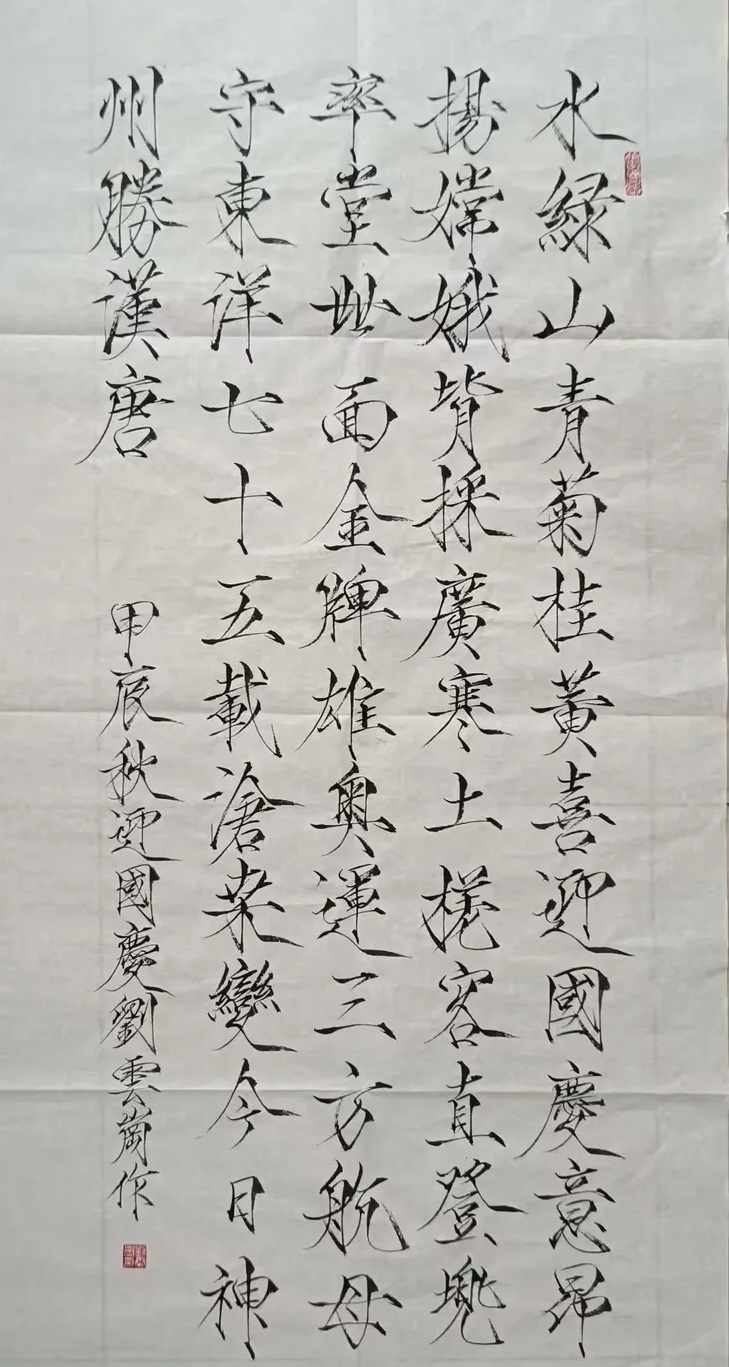 水綠山青菊桂黃喜迎國慶意昂
揚嫦娥背採廣寒土槎客直登兜
率堂卌面金牌雄奧運三方航母
守東洋七十五載滄桒變今日神
州勝漢唐
甲辰秋迎國慶劉雲崗作